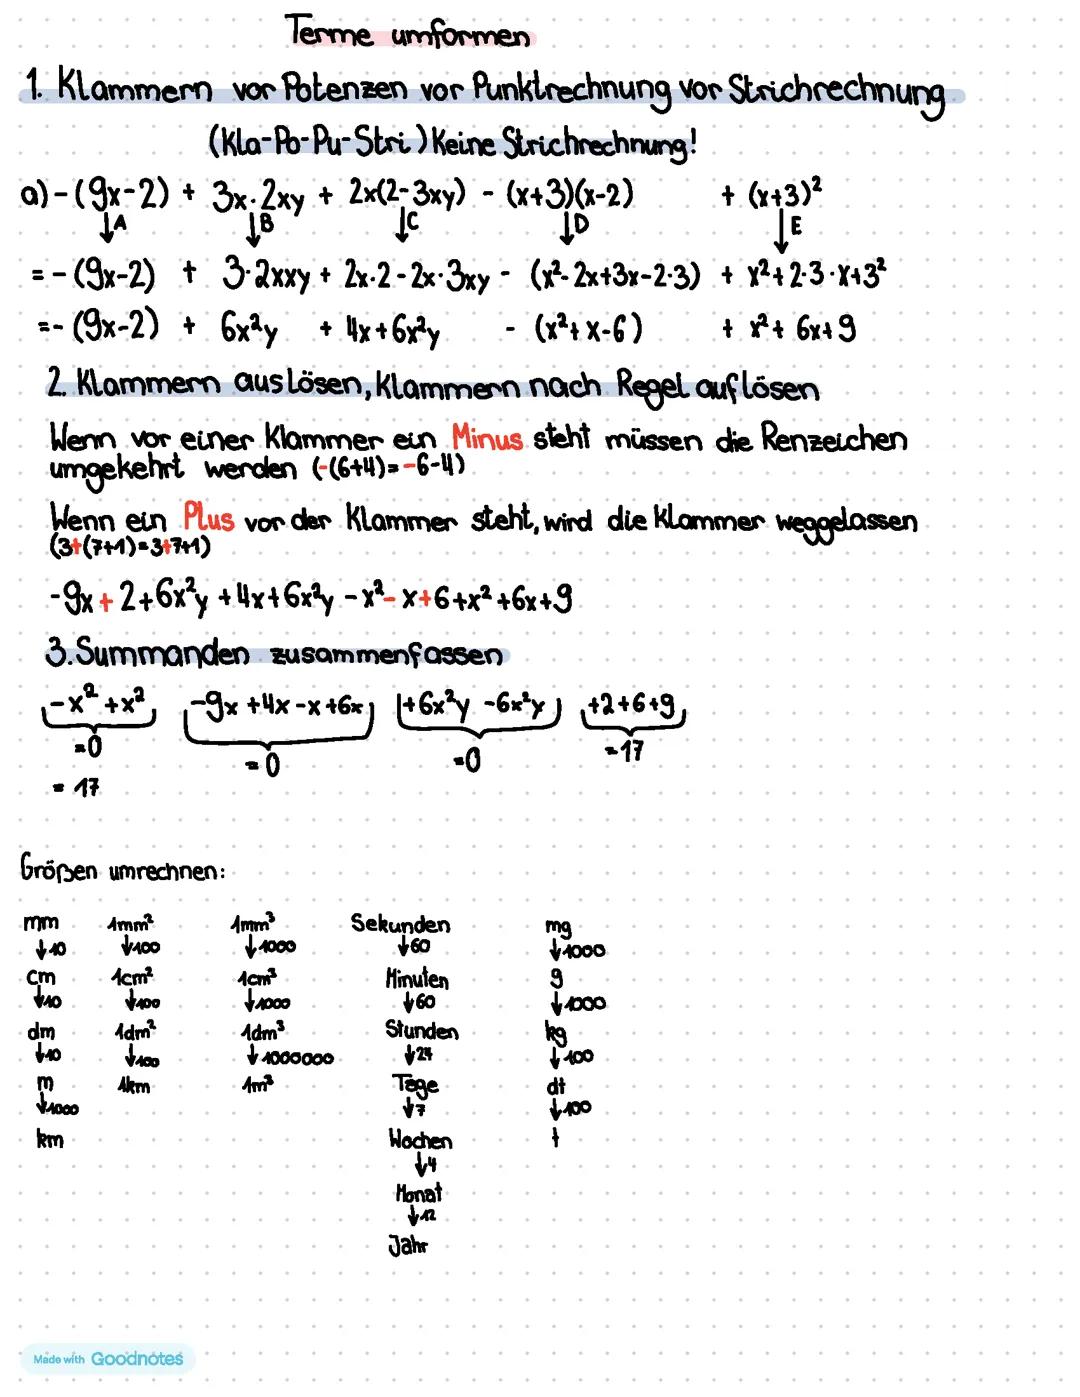 Terme umformen
1. Klammern vor Potenzen vor Punktrechnung vor Strichrechnung
(Kla-Po-Pu-Stri) Keine Strichrechnung!
a) -(9x-2) + 3x·2xy + 2x(2-3xy) - (x+3)(x-2) + (x+3)²
↓A ↓B ↓C ↓D ↓E
= -(9x-2) + 3·2xxy + 2x·2-2x·3xy - (x²-2x+3x-2·3) + x²+2·3·x+3²
=-(9x-2) + 6x²y + 4x+6x²y - (x²+x-6) + x²+6x+9
2. Klammern auslösen, Klammern nach Regel auflösen
Wenn vor einer Klammer ein Minus steht müssen die Renzeichen
umgekehrt werden (-(6+4)=-6-4)
Wenn ein Plus vor der Klammer steht, wird die Klammer weggelassen
(3+(7+1)=3+7+1)
-9x+2+6x²y+4x+6x²y-x²-x+6+x²+6x+9
3. Summanden zusammenfassen
-x²+x² -9x+4x-x+6x +6x²y-6x²y +2+6+9
=0 =0 =0 =17
= 17
Größen umrechnen:
mm 1mm² 1mm³ Sekunden mg
↓10 ↓100 ↓1000 ↓60 ↓1000
cm 1cm² 1cm³ Minuten g
↓10 ↓100 ↓1000 ↓60 ↓1000
dm 1dm² 1dm³ Stunden kg
↓10 ↓100 ↓1000000 ↓24 ↓100
m 1km 1m³ Tage dt
↓1000 ↓7 ↓100
km Wochen t
↓4
Monat
↓12
Jahr
Made with Goodnotes